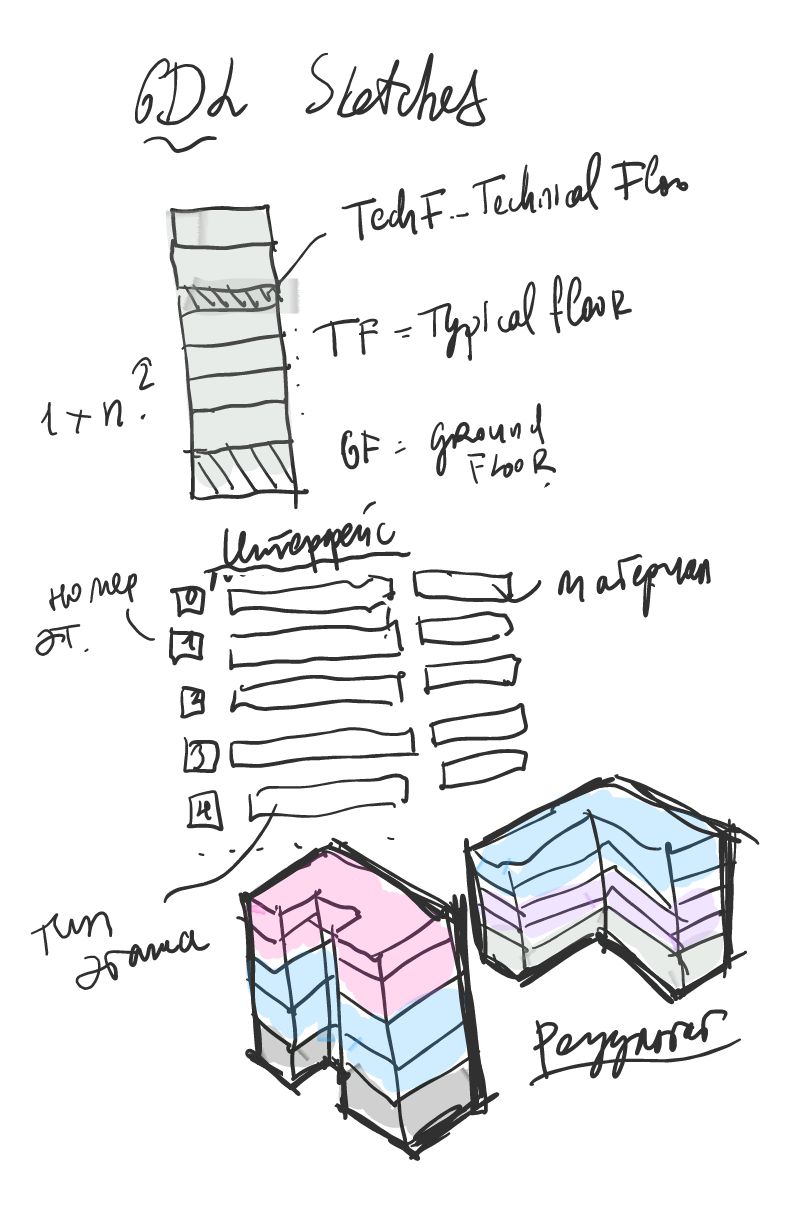 GDL Sketches
TechF - Technical Floo
TF = Typical flooR
1 + n.?
GF = gRound
FlooR.
Интерфейс
номер
эт.
0
1
2
3
4
материал
тип
этажа
Результат